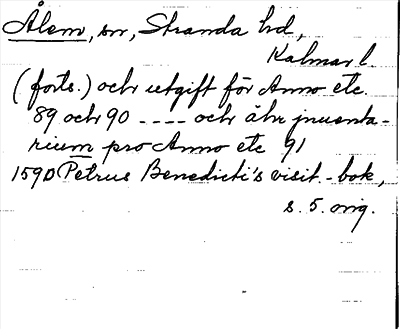 Ålem, sn, Stranda hd,
Kalmar l.
(forts.) och utgift för Anno etc.
89 och 90 ---- och åhr jnuenta-
rium pro Anno etc 91
1590 Petrus Benedicti's visit.-bok,
s. 5. orig.